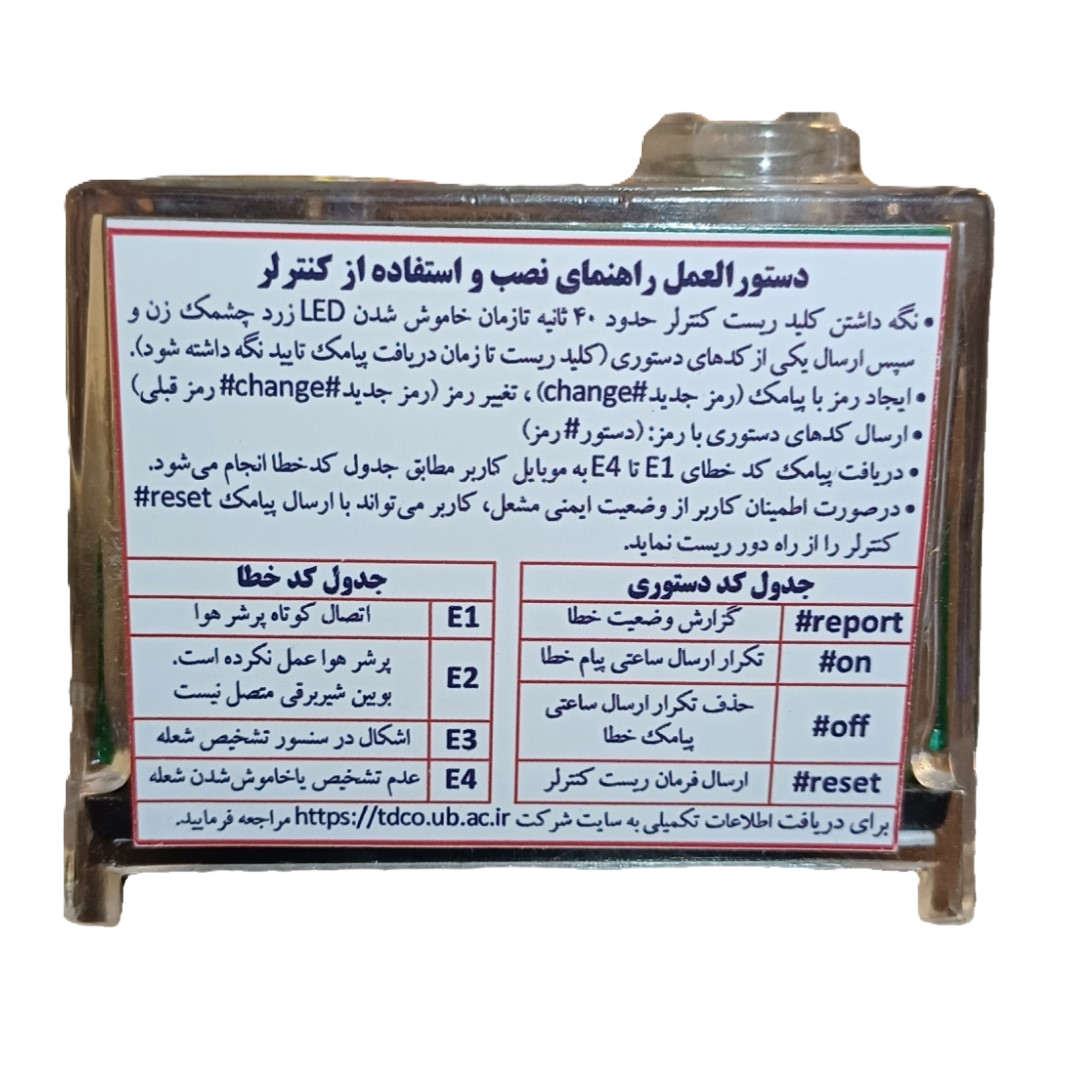 دستورالعمل راهنمای نصب و استفاده از کنترلر
• نگه داشتن کلید ریست کنترلر حدود ۴۰ ثانیه تازمان خاموش شدن LED زرد چشمک زن و
سپس ارسال یکی از کدهای دستوری (کلید ریست تا زمان دریافت پیامک تایید نگه داشته شود).
• ایجاد رمز با پیامک (رمز جدید#change) ، تغییر رمز (رمز جدید#change# رمز قبلی)
• ارسال کدهای دستوری با رمز: (دستور#رمز)
• دریافت پیامک کد خطای E1 تا E4 به موبایل کاربر مطابق جدول کدخطا انجام می‌شود.
• درصورت اطمینان کاربر از وضعیت ایمنی مشعل، کاربر می‌تواند با ارسال پیامک #reset
کنترلر را از راه دور ریست نماید.
جدول کد دستوری
#report گزارش وضعیت خطا
#on تکرار ارسال ساعتی پیام خطا
#off حذف تکرار ارسال ساعتی
پیامک خطا
#reset ارسال فرمان ریست کنترلر
جدول کد خطا
E1 اتصال کوتاه پرشر هوا
E2 پرشر هوا عمل نکرده است.
بوبین شیربرقی متصل نیست
E3 اشکال در سنسور تشخیص شعله
E4 عدم تشخیص یاخاموش‌شدن شعله
برای دریافت اطلاعات تکمیلی به سایت شرکت https://tdco.ub.ac.ir مراجعه فرمایید.